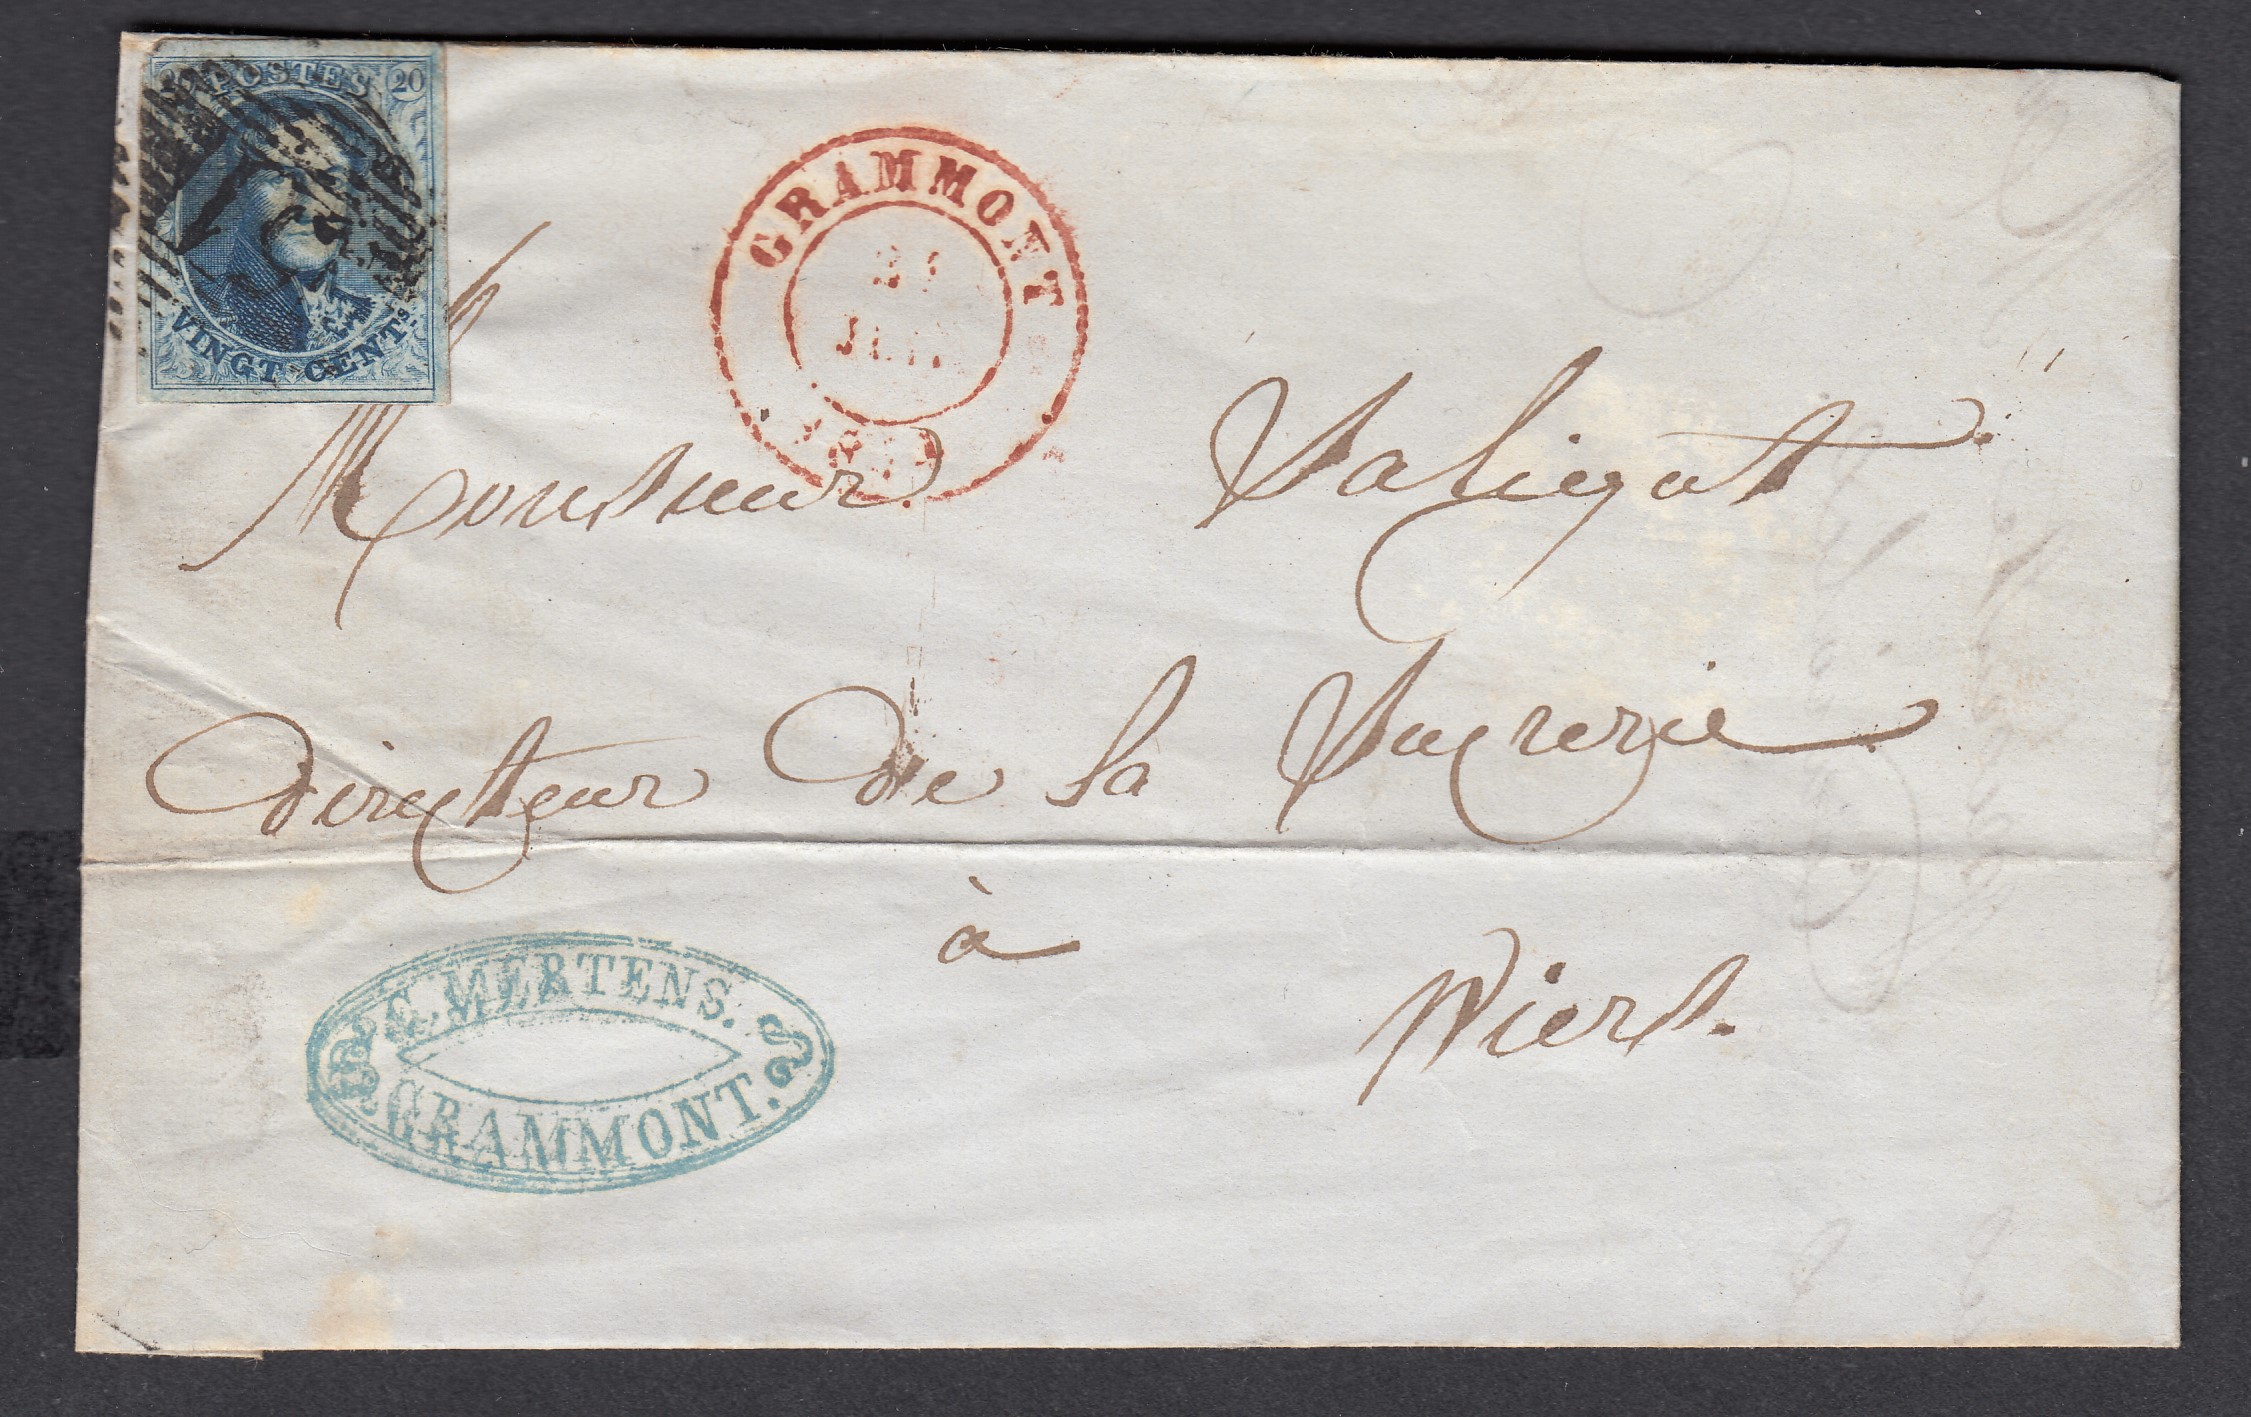 POSTES 20
VINGT CENTS
GRAMMONT
Monsieur Saliegot
Directeur de la Sucrerie
à Wiers.
C. MERTENS.
GRAMMONT.